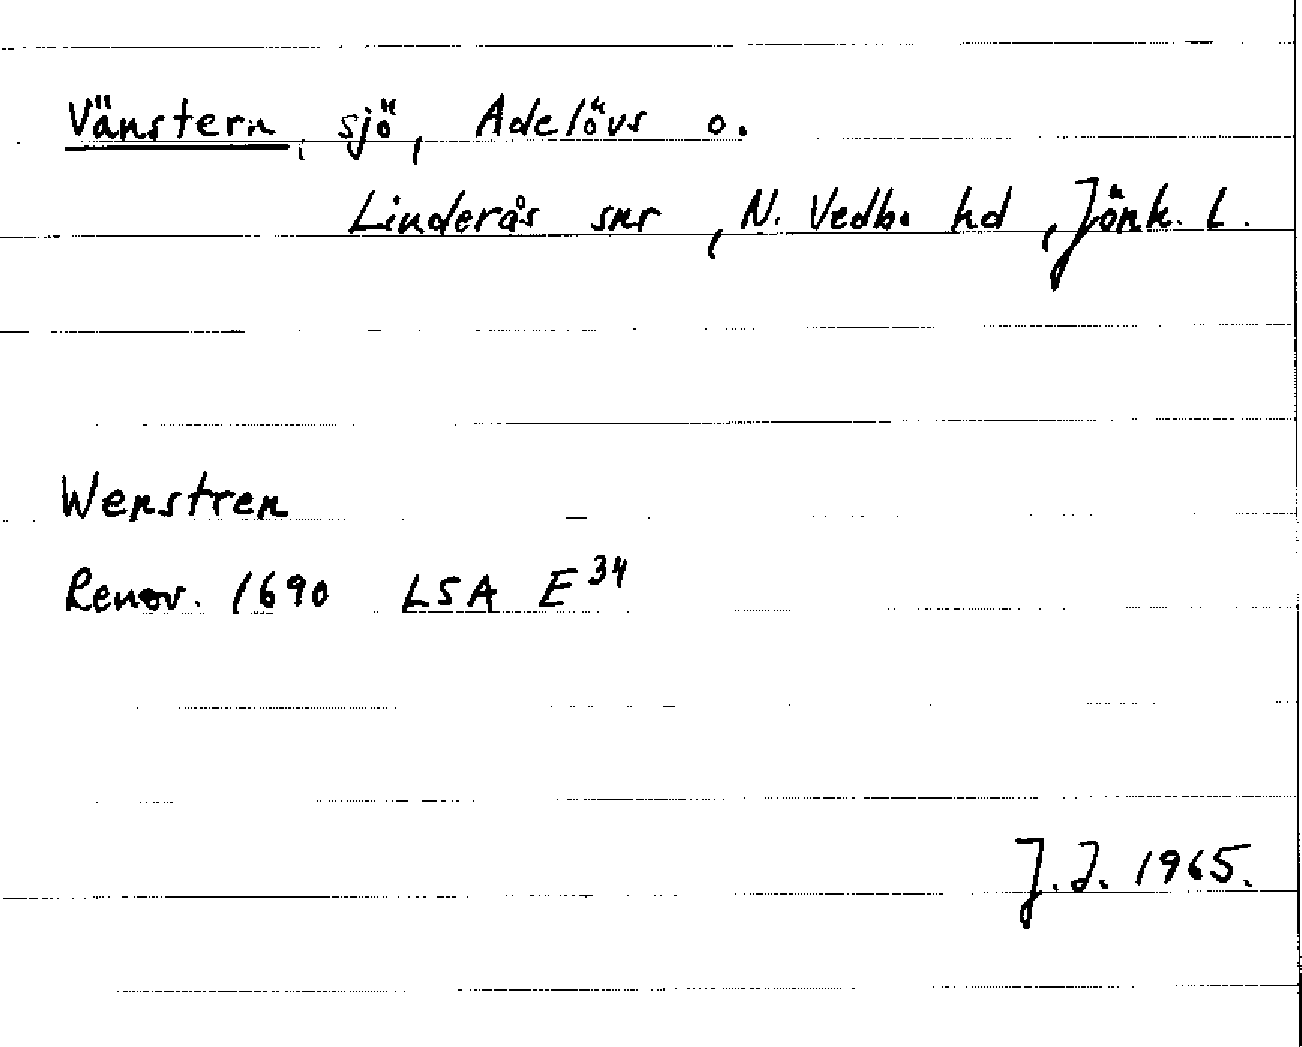 Vänstern, sjö, Adelövs o.
Linderås snr, N. Vedb. hd, Jönk. L.
Wenstren
Renov. 1690 LSA E 34
J. I. 1965.